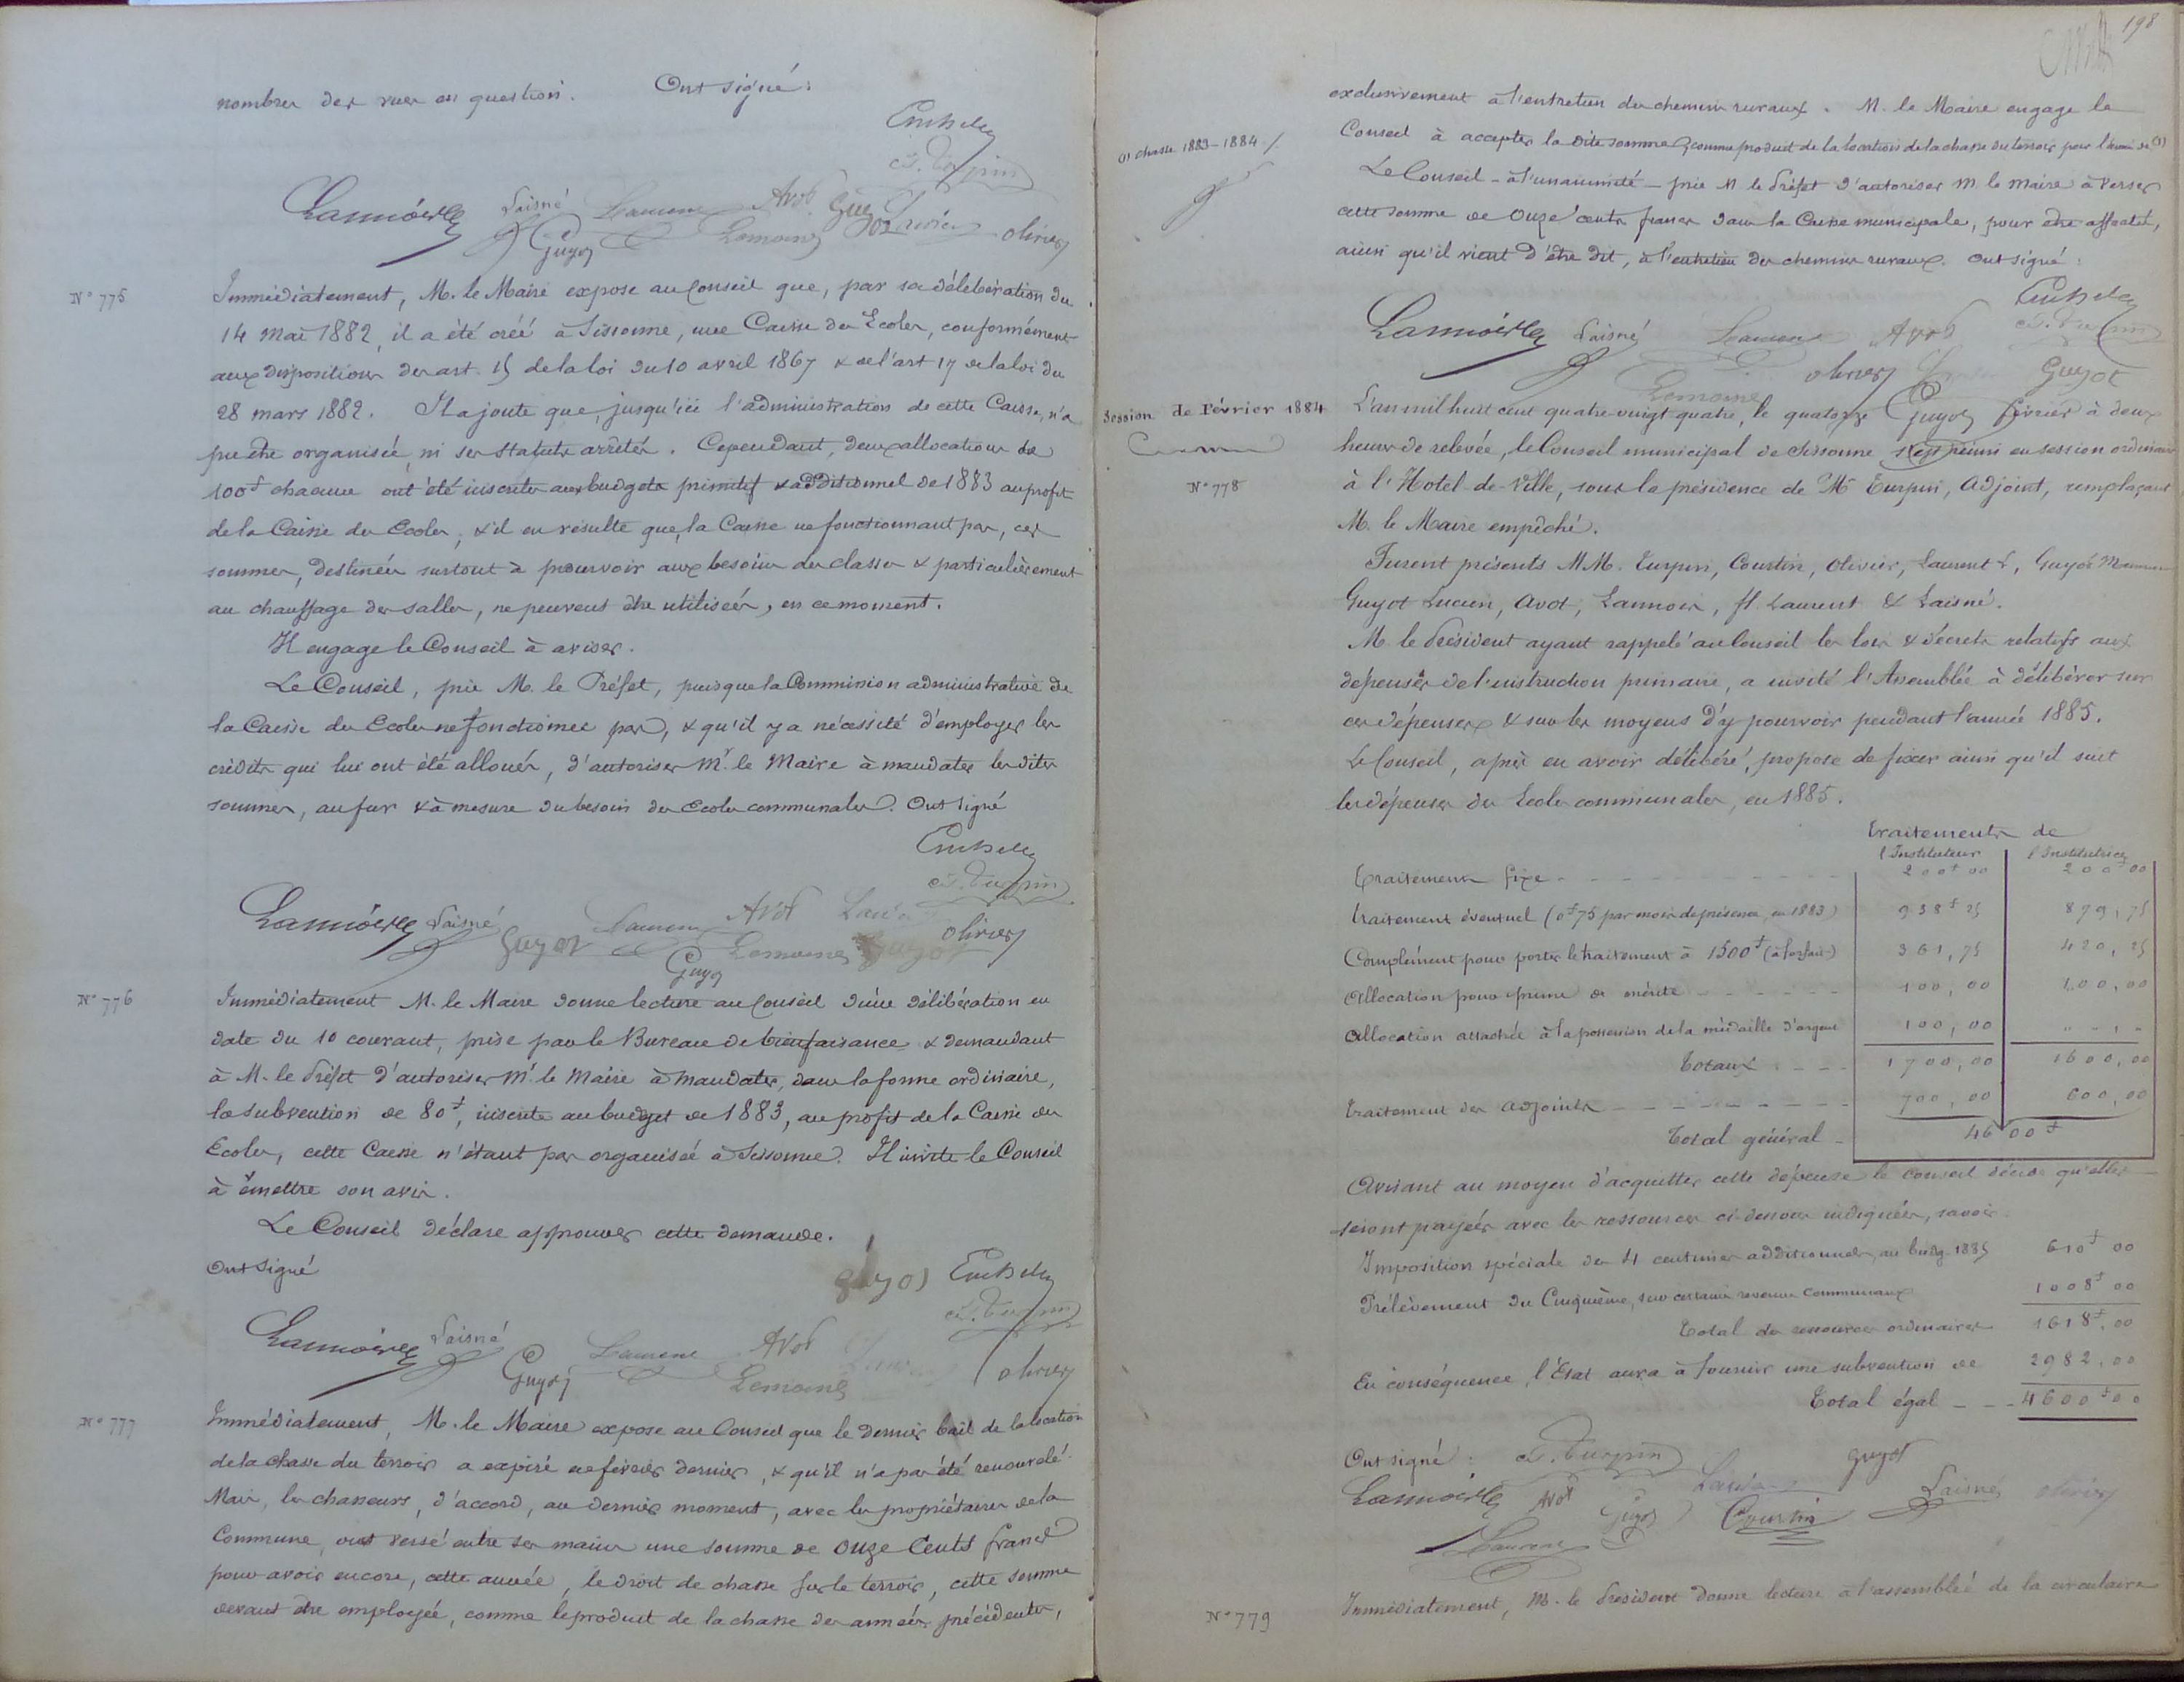 nombres des rues en question. Ont signé:
Lannois Laisné Laurent Avot Guyot
T. Turpin
Guyot Lemoine Olivier
N° 775
Immédiatement, M. le Maire expose au Conseil que, par sa délibération du
14 Mai 1882, il a été créé à Sissonne, une Caisse des Ecoles, conformément
aux dispositions des art. 15 de la loi du 10 avril 1867 & de l'art 17 de la loi du
28 mars 1882. Il ajoute que, jusqu'ici l'administration de cette Caisse, n'a
pu être organisée, ni ses statuts arrêtés. Cependant, deux allocations de
100f chacune ont été inscrites aux budgets primitif & additionnel de 1883 au profit
de la Caisse des Ecoles, & il en résulte que, la Caisse ne fonctionnant pas, ces
sommes, destinées surtout à pourvoir aux besoins des classes & particulièrement
au chauffage des salles, ne peuvent être utilisées, en ce moment.
Il engage le Conseil à aviser.
Le Conseil, prie M. le Préfet, puisque la Commission administrative de
la Caisse des Ecoles ne fonctionne pas, & qu'il y a nécessité d'employer les
crédits qui lui ont été alloués, d'autoriser Mr. le Maire à mandater les dites
sommes, au fur & à mesure du besoin des Ecoles communales. Ont signé
T. Turpin
Lannois Laisné Guyot Laurent Avot
Lemoine Guyot Olivier
Guyot
N° 776
Immédiatement M. le Maire donne lecture au Conseil d'une délibération en
date du 10 courant, prise par le Bureau de bienfaisance & demandant
à M. le Préfet d'autoriser Mr. le Maire à mandater, dans la forme ordinaire,
la subvention de 80f, inscrite au budget de 1883, au profit de la Caisse des
Ecoles, cette Caisse n'étant pas organisée à Sissonne. Il invite le Conseil
à émettre son avis.
Le Conseil déclare approuver cette demande.
Ont signé
Guyot
T. Turpin
Lannois Laisné Guyot Laurent Avot
Lemoine Olivier
N° 777
Immédiatement, M. le Maire expose au Conseil que le dernier bail de la location
de la chasse du terroir a expiré en février dernier, & qu'il n'a pas été renouvelé.
Mais, les chasseurs, d'accord, au dernier moment, avec les propriétaires de la
Commune, ont versé entre ses mains une somme de Onze Cents francs
pour avoir encore, cette année, le droit de chasse sur le terroir, cette somme
devant être employée, comme le produit de la chasse des années précédentes,
198
exclusivement à l'entretien des chemins ruraux. M. le Maire engage le
Conseil à accepter la dite somme, comme produit de la location de la chasse du terroir pour l'année de (1)
(1) chasse 1883-1884 /.
Le Conseil - à l'unanimité - prie M. le Préfet d'autoriser M. le Maire à verser
cette somme de Onze cents francs dans la Caisse municipale, pour être affectée,
ainsi qu'il vient d'être dit, à l'entretien des chemins ruraux. Ont signé:
T. Turpin
Lannois Laisné Laurent Avot
Lemoine Olivier Guyot
Guyot
Session de Février 1884
L'an mil huit cent quatre-vingt-quatre, le quatorze février à deux
heures de relevée, le Conseil municipal de Sissonne s'est réuni en session ordinaire
N° 778
à l'Hotel-de-Ville, sous la présidence de Mr Turpin, Adjoint, remplaçant
M. le Maire empêché.
Furent présents MM. Turpin, Courtin, Olivier, Laurent L, Guyot
Guyot Lucien, Avot, Lannois, fl. Laurent & Laisné.
M. le Président ayant rappelé au Conseil les lois & décrets relatifs aux
dépenses de l'instruction primaire, a invité l'Assemblée à délibérer sur
ces dépenses & sur les moyens d'y pourvoir pendant l'année 1885.
Le Conseil, après en avoir délibéré, propose de fixer ainsi qu'il suit
les dépenses des Ecoles communales, en 1885.
Traitements de
l'Instituteur l'Institutrice
Traitement fixe 200f 00 200f 00
Traitement éventuel (0f75 par mois de présence, en 1883) 938f 25 879,75
Complément pour porter le traitement à 1500f (à forfait) 361,75 420,25
Allocation pour prime de mérite 100,00 100,00
Allocation attachée à la possession de la médaille d'argent 100,00 " - , -
Totaux 1700,00 1600,00
Traitement des adjoints 700,00 600,00
Total général 4600f
Avisant au moyen d'acquitter cette dépense le Conseil décide qu'elles
seront payées avec les ressources ci-dessous indiquées, savoir
Imposition spéciale des 4 centimes additionnels, au budg. 1885 610f 00
Prélèvement du Cinquième, sur certains revenus communaux 1008f 00
Total des ressources ordinaires 1618f,00
En conséquence, l'Etat aura à fournir une subvention de 2982,00
Total égal 4600f00
Ont signé: T. Turpin Guyot
Lannois Avot Guyot Courtin Laisné Olivier
Laurent
N° 779
Immédiatement, M. le Président donne lecture à l'assemblée de la circulaire